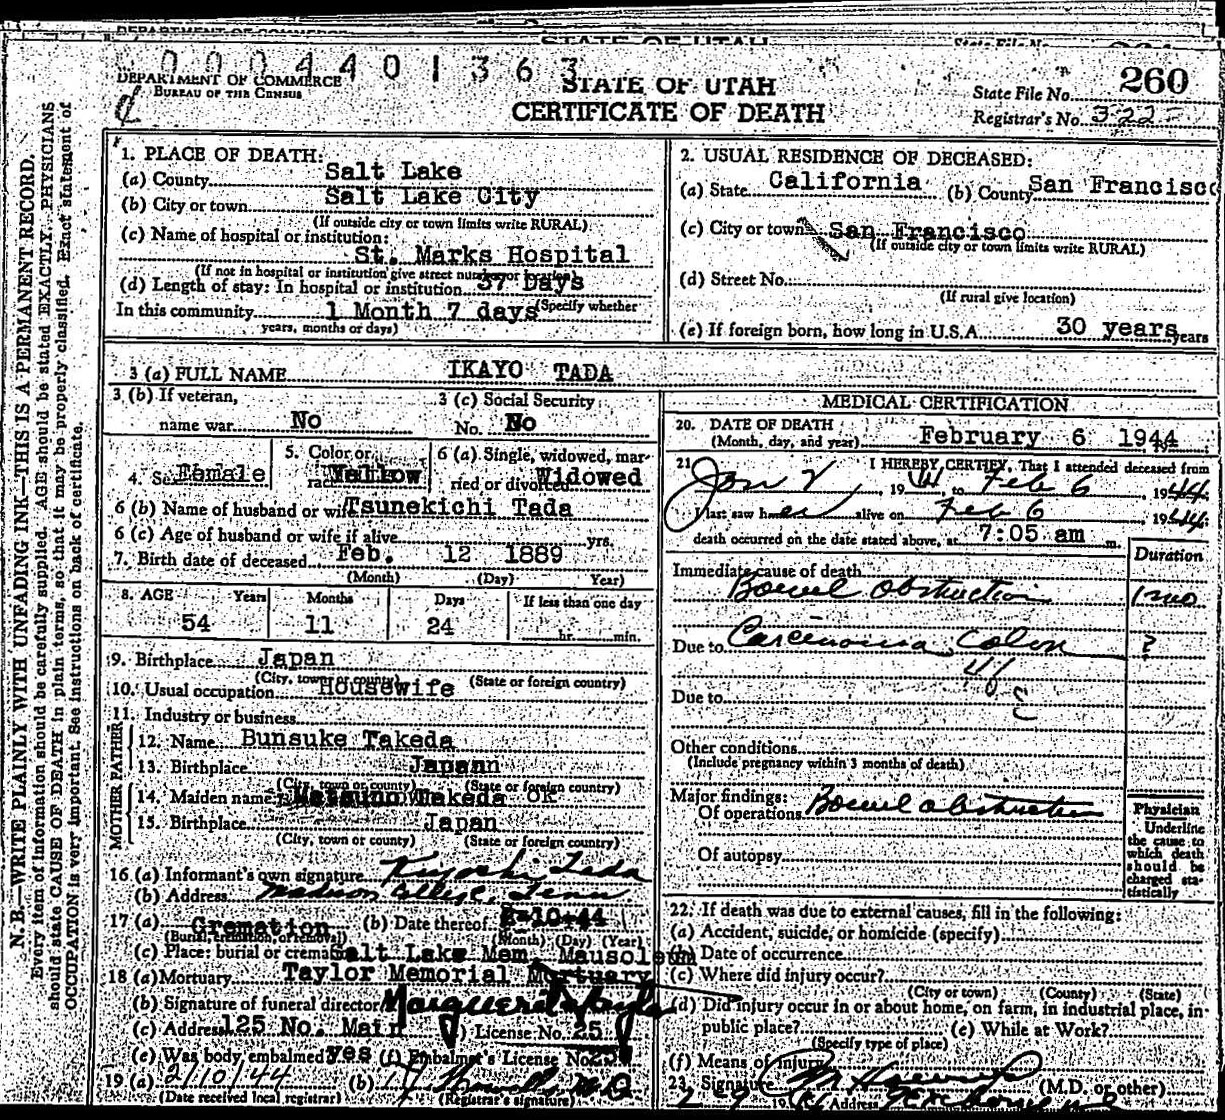 0004401363
DEPARTMENT OF COMMERCE
BUREAU OF THE CENSUS
STATE OF UTAH
CERTIFICATE OF DEATH
State File No. 260
Registrar's No. 322
N. B.—WRITE PLAINLY WITH UNFADING INK—THIS IS A PERMANENT RECORD.
Every item of information should be carefully supplied. AGE should be stated EXACTLY. PHYSICIANS
should state CAUSE OF DEATH in plain terms, so that it may be properly classified. Exact statement of
OCCUPATION is very important. See instructions on back of certificate.
1. PLACE OF DEATH:
(a) County Salt Lake
(b) City or town Salt Lake City
(If outside city or town limits write RURAL)
(c) Name of hospital or institution:
St. Marks Hospital
(If not in hospital or institution give street number or location)
(d) Length of stay: In hospital or institution 37 Days
(Specify whether
In this community 1 Month 7 days
years, months or days)
2. USUAL RESIDENCE OF DECEASED:
(a) State California (b) County San Francisco
(c) City or town San Francisco
(If outside city or town limits write RURAL)
(d) Street No.
(If rural give location)
(e) If foreign born, how long in U.S.A. 30 years years
3 (a) FULL NAME IKAYO TADA
3 (b) If veteran,
name war No
3 (c) Social Security
No. No
4. Sex Female
5. Color or
race Yellow
6 (a) Single, widowed, mar-
ried or divorced Widowed
6 (b) Name of husband or wife Tsunekichi Tada
6 (c) Age of husband or wife if alive yrs.
7. Birth date of deceased Feb. 12 1889
(Month) (Day) Year)
8. AGE Years Months Days If less than one day
54 11 24 hr. min.
9. Birthplace Japan
(City, town or county) (State or foreign country)
10. Usual occupation Housewife
11. Industry or business
FATHER
12. Name Bunsuke Takeda
13. Birthplace Japann
(City, town or county) (State or foreign country)
MOTHER
14. Maiden name Takeda OK
15. Birthplace Japan
(City, town or county) (State or foreign country)
16 (a) Informant's own signature Kiyoshi Tada
(b) Address
17 (a) Cremation (b) Date thereof 2-10-44
(Burial, cremation, or removal) (Month) (Day) (Year)
(c) Place: burial or cremation Salt Lake Mem. Mausoleum
18 (a) Mortuary Taylor Memorial Mortuary
(b) Signature of funeral director
(c) Address 125 No. Main License No. 25
(e) Was body embalmed? yes (f) Embalmer's License No.
19 (a) 2/10/44 (b) M.D.
(Date received local registrar) (Registrar's signature)
MEDICAL CERTIFICATION
20. DATE OF DEATH
(Month, day, and year) February 6 1944
21. I HEREBY CERTIFY, That I attended deceased from
Jan , 1944 to Feb 6 , 1944
I last saw her alive on Feb 6 , 1944
death occurred on the date stated above, at 7:05 am m.
Duration
Immediate cause of death
Bowel obstruction 1 mo
Due to Carcinoma, Colon ?
46
E
Due to
Other conditions
(Include pregnancy within 3 months of death)
Major findings:
Of operations Bowel obstruction
Of autopsy
Physician
Underline
the cause to
which death
should be
charged sta-
tistically
22. If death was due to external causes, fill in the following:
(a) Accident, suicide, or homicide (specify)
(b) Date of occurrence
(c) Where did injury occur?
(City or town) (County) (State)
(d) Did injury occur in or about home, on farm, in industrial place, in
public place? (e) While at Work?
(Specify type of place)
(f) Means of injury
23. Signature (M.D. or other)
2-9 1944 Address